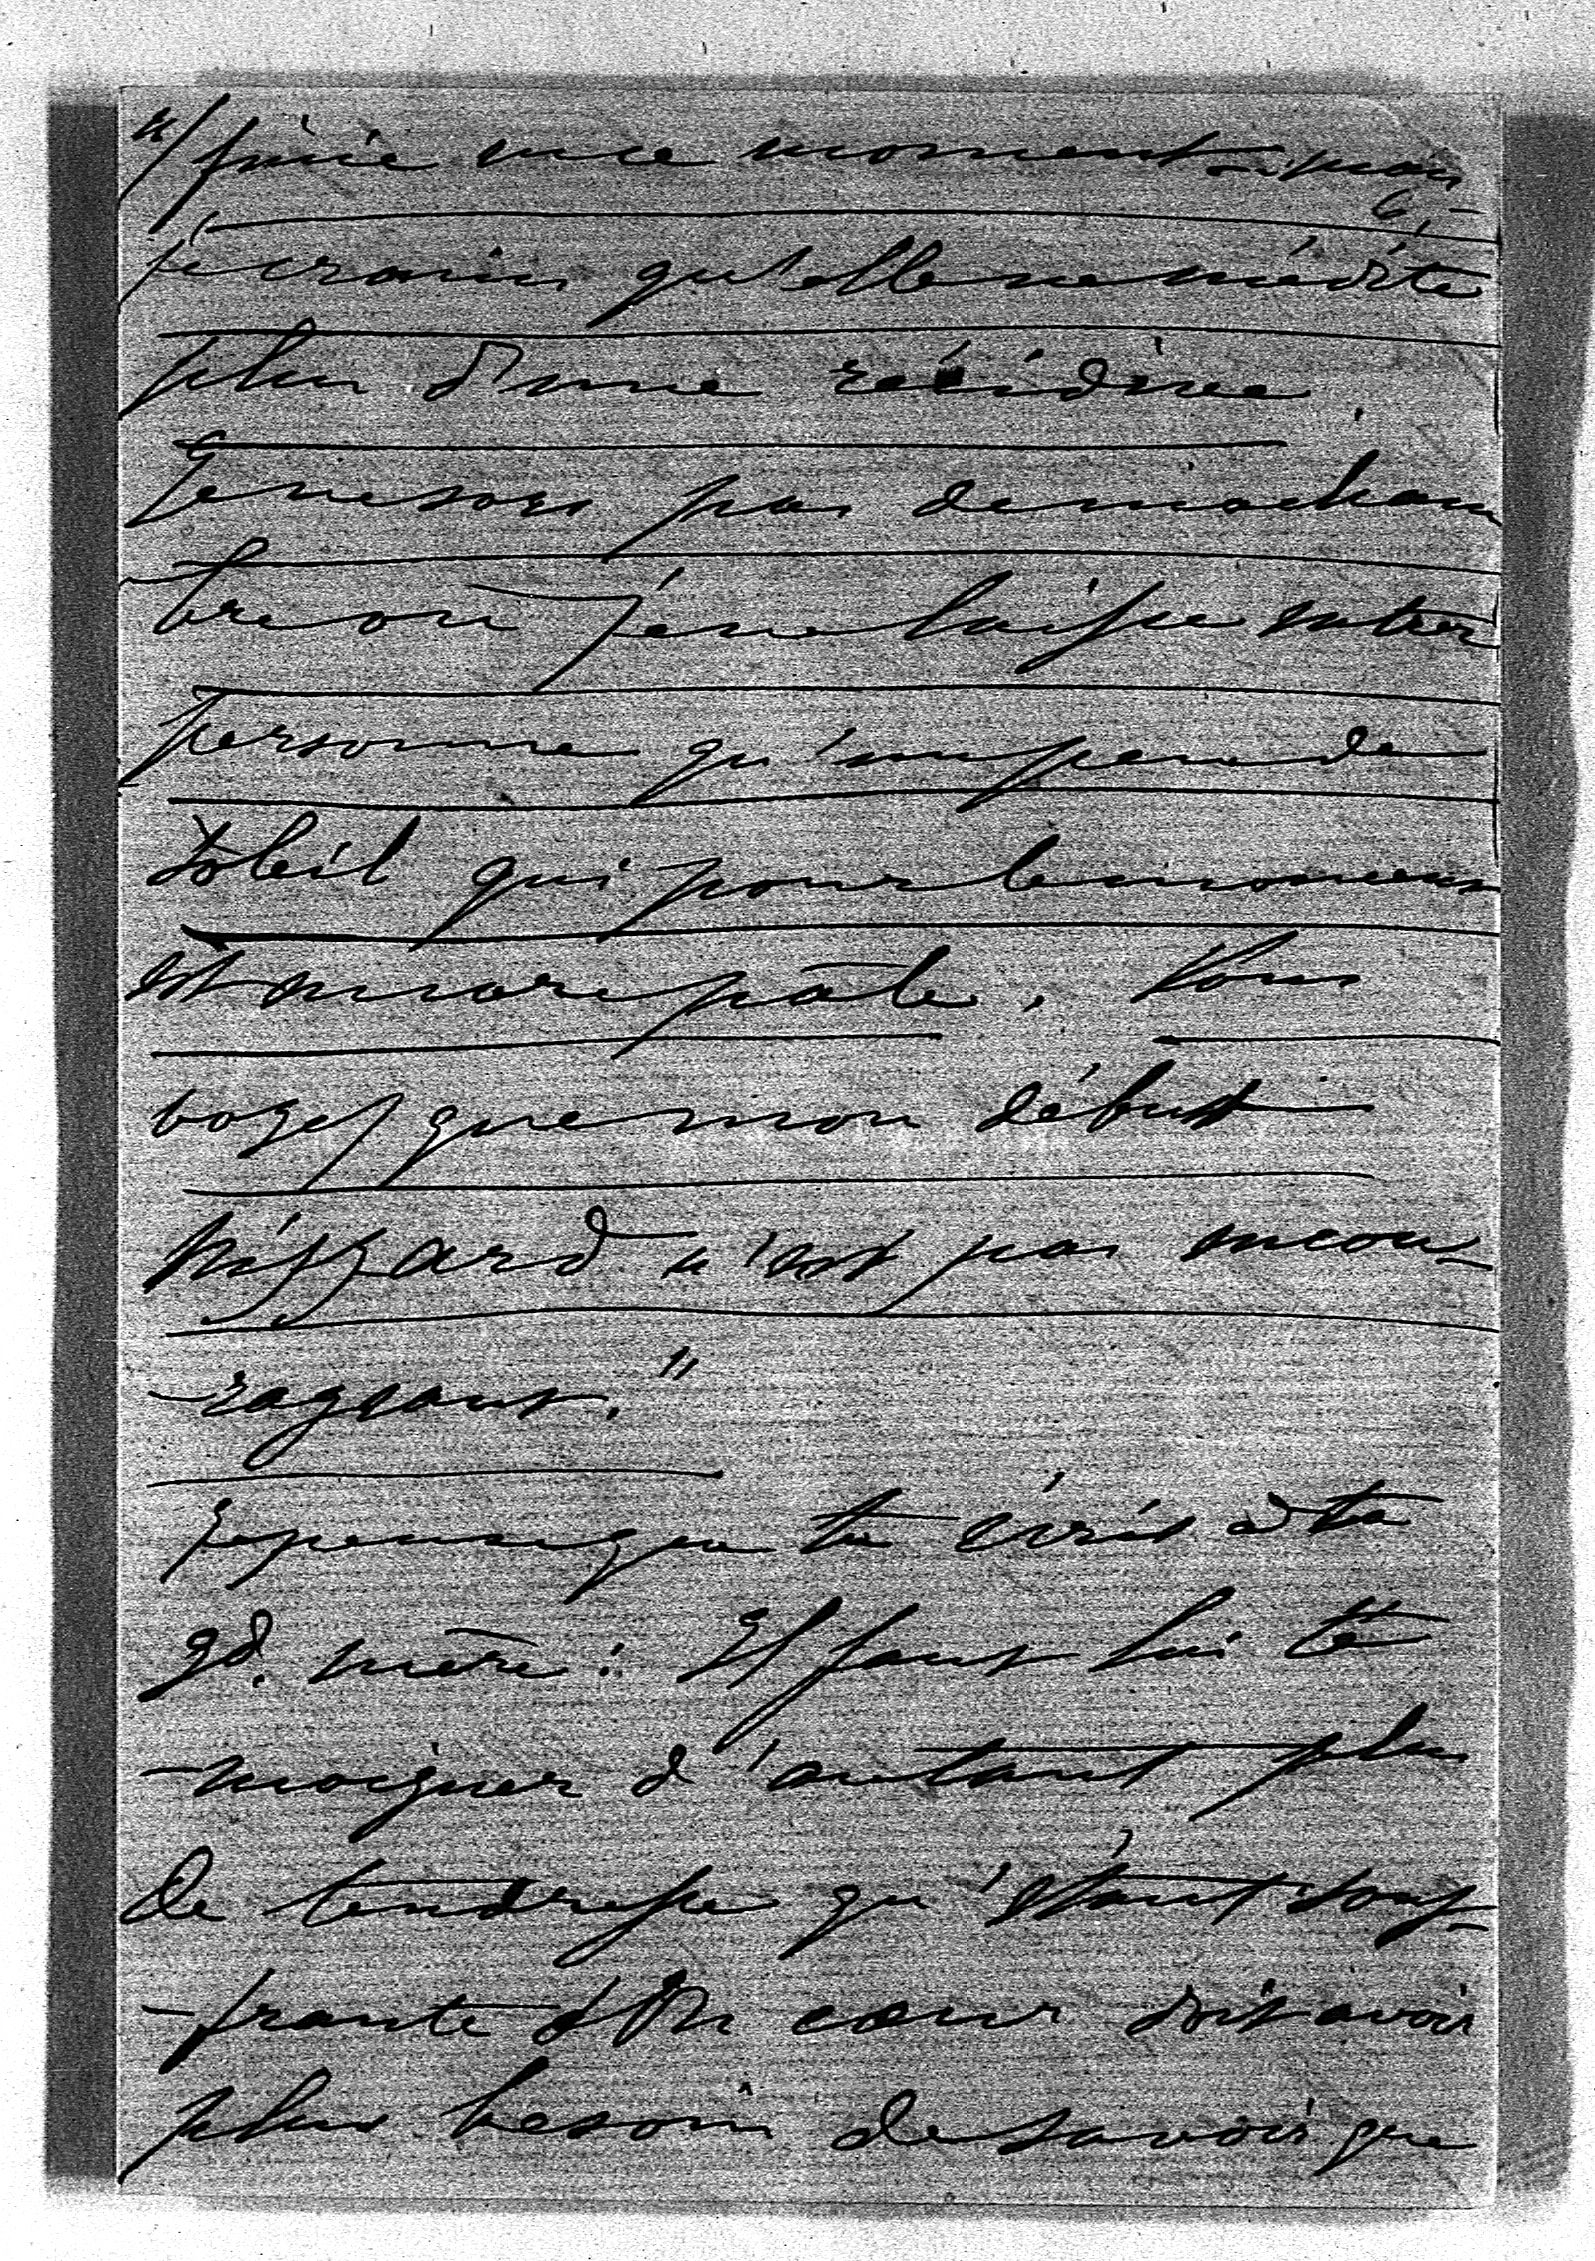 finie en ce moment - mais
6,-
je crains qu'elle ne médite
plus d'une récidive.
Je ne sors pas de ma cham
bre où je ne laisse entrer
personne qu'un peu de
soleil qui pour le moment
est encore pâle. Vous
voyez que mon début
Nizzard n'est pas encou-
-rageant."
Je pense que tu écris à ta
gd. mère: Il faut lui té
-moigner d'autant plus
de tendresse qu'étant souf-
-frante son cœur doit avoir
plus besoin de savoir que